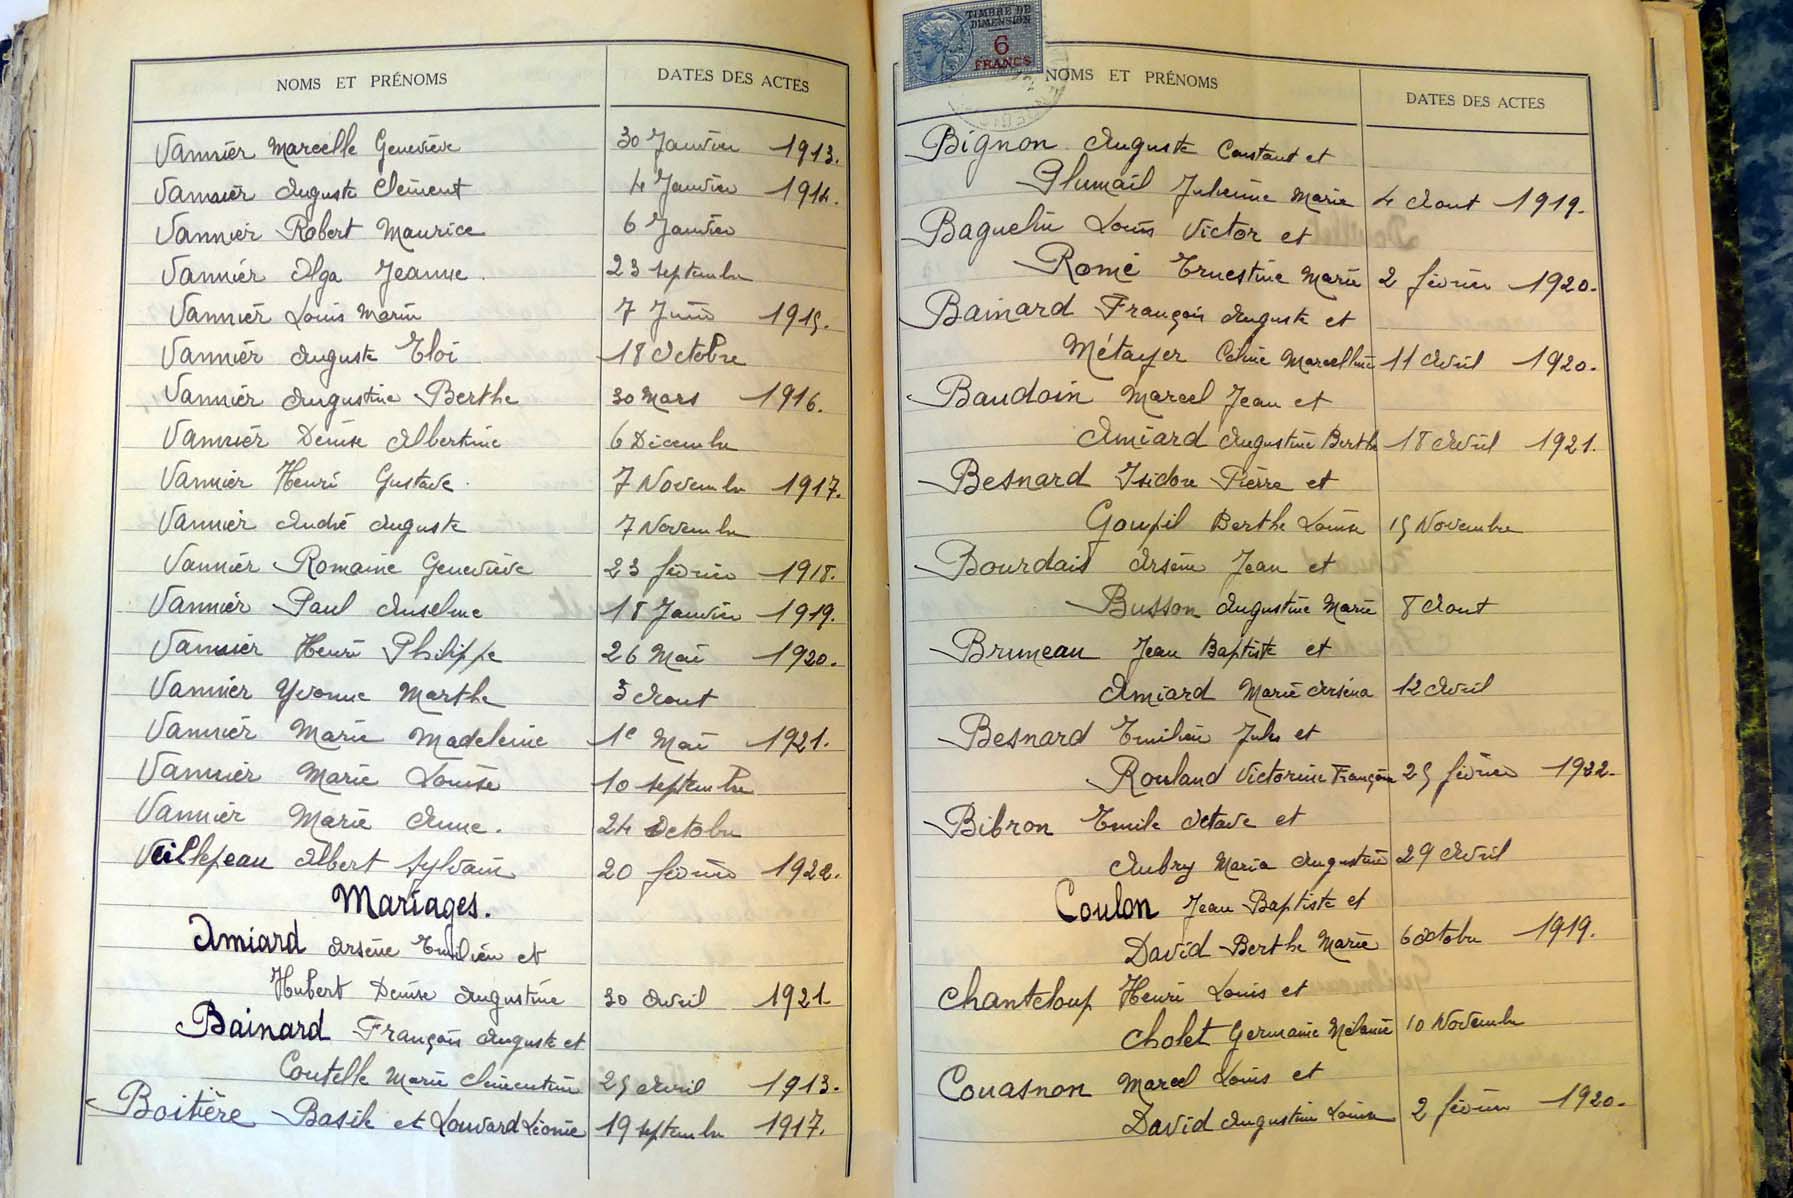 NOMS ET PRÉNOMS DATES DES ACTES
Vannier Marcelle Geneviève 30 Janvier 1913.
Vannier Auguste Clément 4 Janvier 1914.
Vannier Robert Maurice 6 Janvier
Vannier Olga Jeanne. 23 septembre
Vannier Louis Marin 7 Juin 1915.
Vannier Auguste Eloi 18 Octobre
Vannier Augustine Berthe 30 Mars 1916.
Vannier Denise Albertine 6 Décembre
Vannier Henri Gustave. 7 Novembre 1917.
Vannier André Auguste 7 Novembre
Vannier Romaine Geneviève 23 février 1918.
Vannier Paul Anselme 18 Janvier 1919.
Vannier Henri Philippe 26 Mai 1920.
Vannier Yvonne Marthe 3 Aout
Vannier Marie Madeleine 1e Mai 1921.
Vannier Marie Louise 10 septembre
Vannier Marie Anne. 24 Octobre
Veillepeau Albert Sylvain 20 février 1922.
Mariages.
Amiard Arsène Emilien et
Hubert Denise Augustine 30 Avril 1921
Bainard François Auguste et
Coutelle Marie Clémentine 25 Avril 1913.
Boitière Basile et Louvard Léonie 19 septembre 1917.
TIMBRE DE
DIMENSION
6
FRANCS
NOMS ET PRÉNOMS DATES DES ACTES
Bignon Auguste Constant et
Plumail Julienne Marie 4 Aout 1919.
Baguelin Louis Victor et
Romé Ernestine Marie 2 février 1920.
Bainard François Auguste et
Métayer Céline Marcelline 11 Avril 1920.
Baudoin Marcel Jean et
Amiard Augustine Berthe 18 Avril 1921.
Besnard Isidore Pierre et
Goupil Berthe Louise 15 Novembre
Bourdais Arsène Jean et
Busson Augustine Marie 8 Aout
Bruneau Jean Baptiste et
Amiard Marie Arséna 12 Avril
Besnard Emilien Jules et
Rouland Victorine Françoise 25 février 1922.
Bibron Emile Octave et
Aubry Maria Augustine 29 Avril
Coulon Jean Baptiste et
David Berthe Marie 6 Octobre 1919.
Chanteloup Henri Louis et
Cholet Germaine Mélanie 10 Novembre
Couasnon Marcel Louis et
David Augustine Louise 2 février 1920.